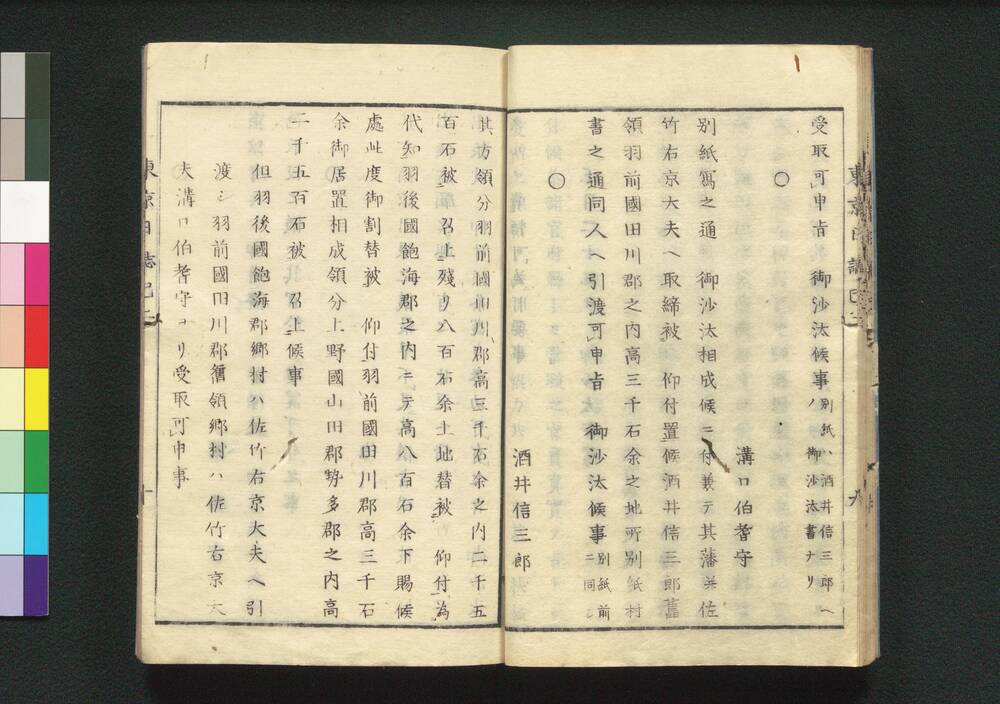 受取可申旨 御沙汰候事 別紙ハ酒井信三郎ヘノ御沙汰書ナリ
〇
溝口伯耆守
別紙寫之通 御沙汰相成候ニ付兼テ其藩并佐
竹右京大夫ヘ取締被 仰付置候酒井信三郎舊
領羽前國田川郡之内高三千石余之地所別紙村
書之通同人ヘ引渡可申旨 御沙汰候事 別紙前ニ同シ
〇
酒井信三郎
其方領分羽前國田川郡高三千石余之内二千五
百石被 召上殘リ八百石余土地替被 仰付為
代知羽後國飽海郡之内ニテ高八百石余下賜候
處此度御割替被 仰付羽前國田川郡高三千石
余御居置相成領分上野國山田郡勢多郡之内高
二千五百石被 召上候事
但羽後國飽海郡郷村ハ佐竹右京大夫ヘ引
渡シ羽前國田川郡舊領郷村ハ佐竹右京大
夫溝口伯耆守ヨリ受取可申事
東京日誌
九
東京日誌
十